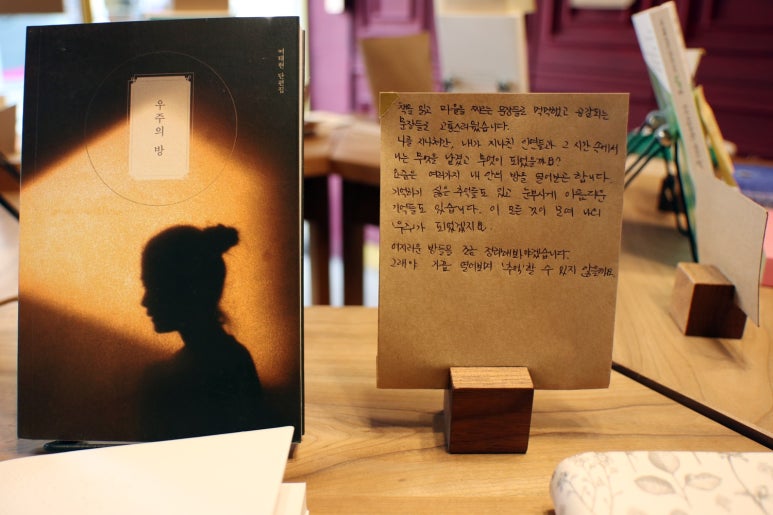 우주의 방
여태현 단편집
책을 읽고 마음을 찌르는 문장들로 먹먹했고 공감되는
문장들로 고통스러웠습니다.
나를 지나쳐간, 내가 지나친 인연들과 그 시간 속에서
나는 무엇을 남겼고 무엇이 되었을까요?
요즘은 여러가지 내 안의 방을 열어보곤 합니다.
기억하기 싫은 추억들도 있고 눈부시게 아름다운
기억들도 있습니다. 이 모든 것이 모여 나의
'우주'가 되었겠지요.
어지러운 방들을 조금 정리해봐야겠습니다.
그래야 가끔 열어보며 '추억'할 수 있지 않을까요.